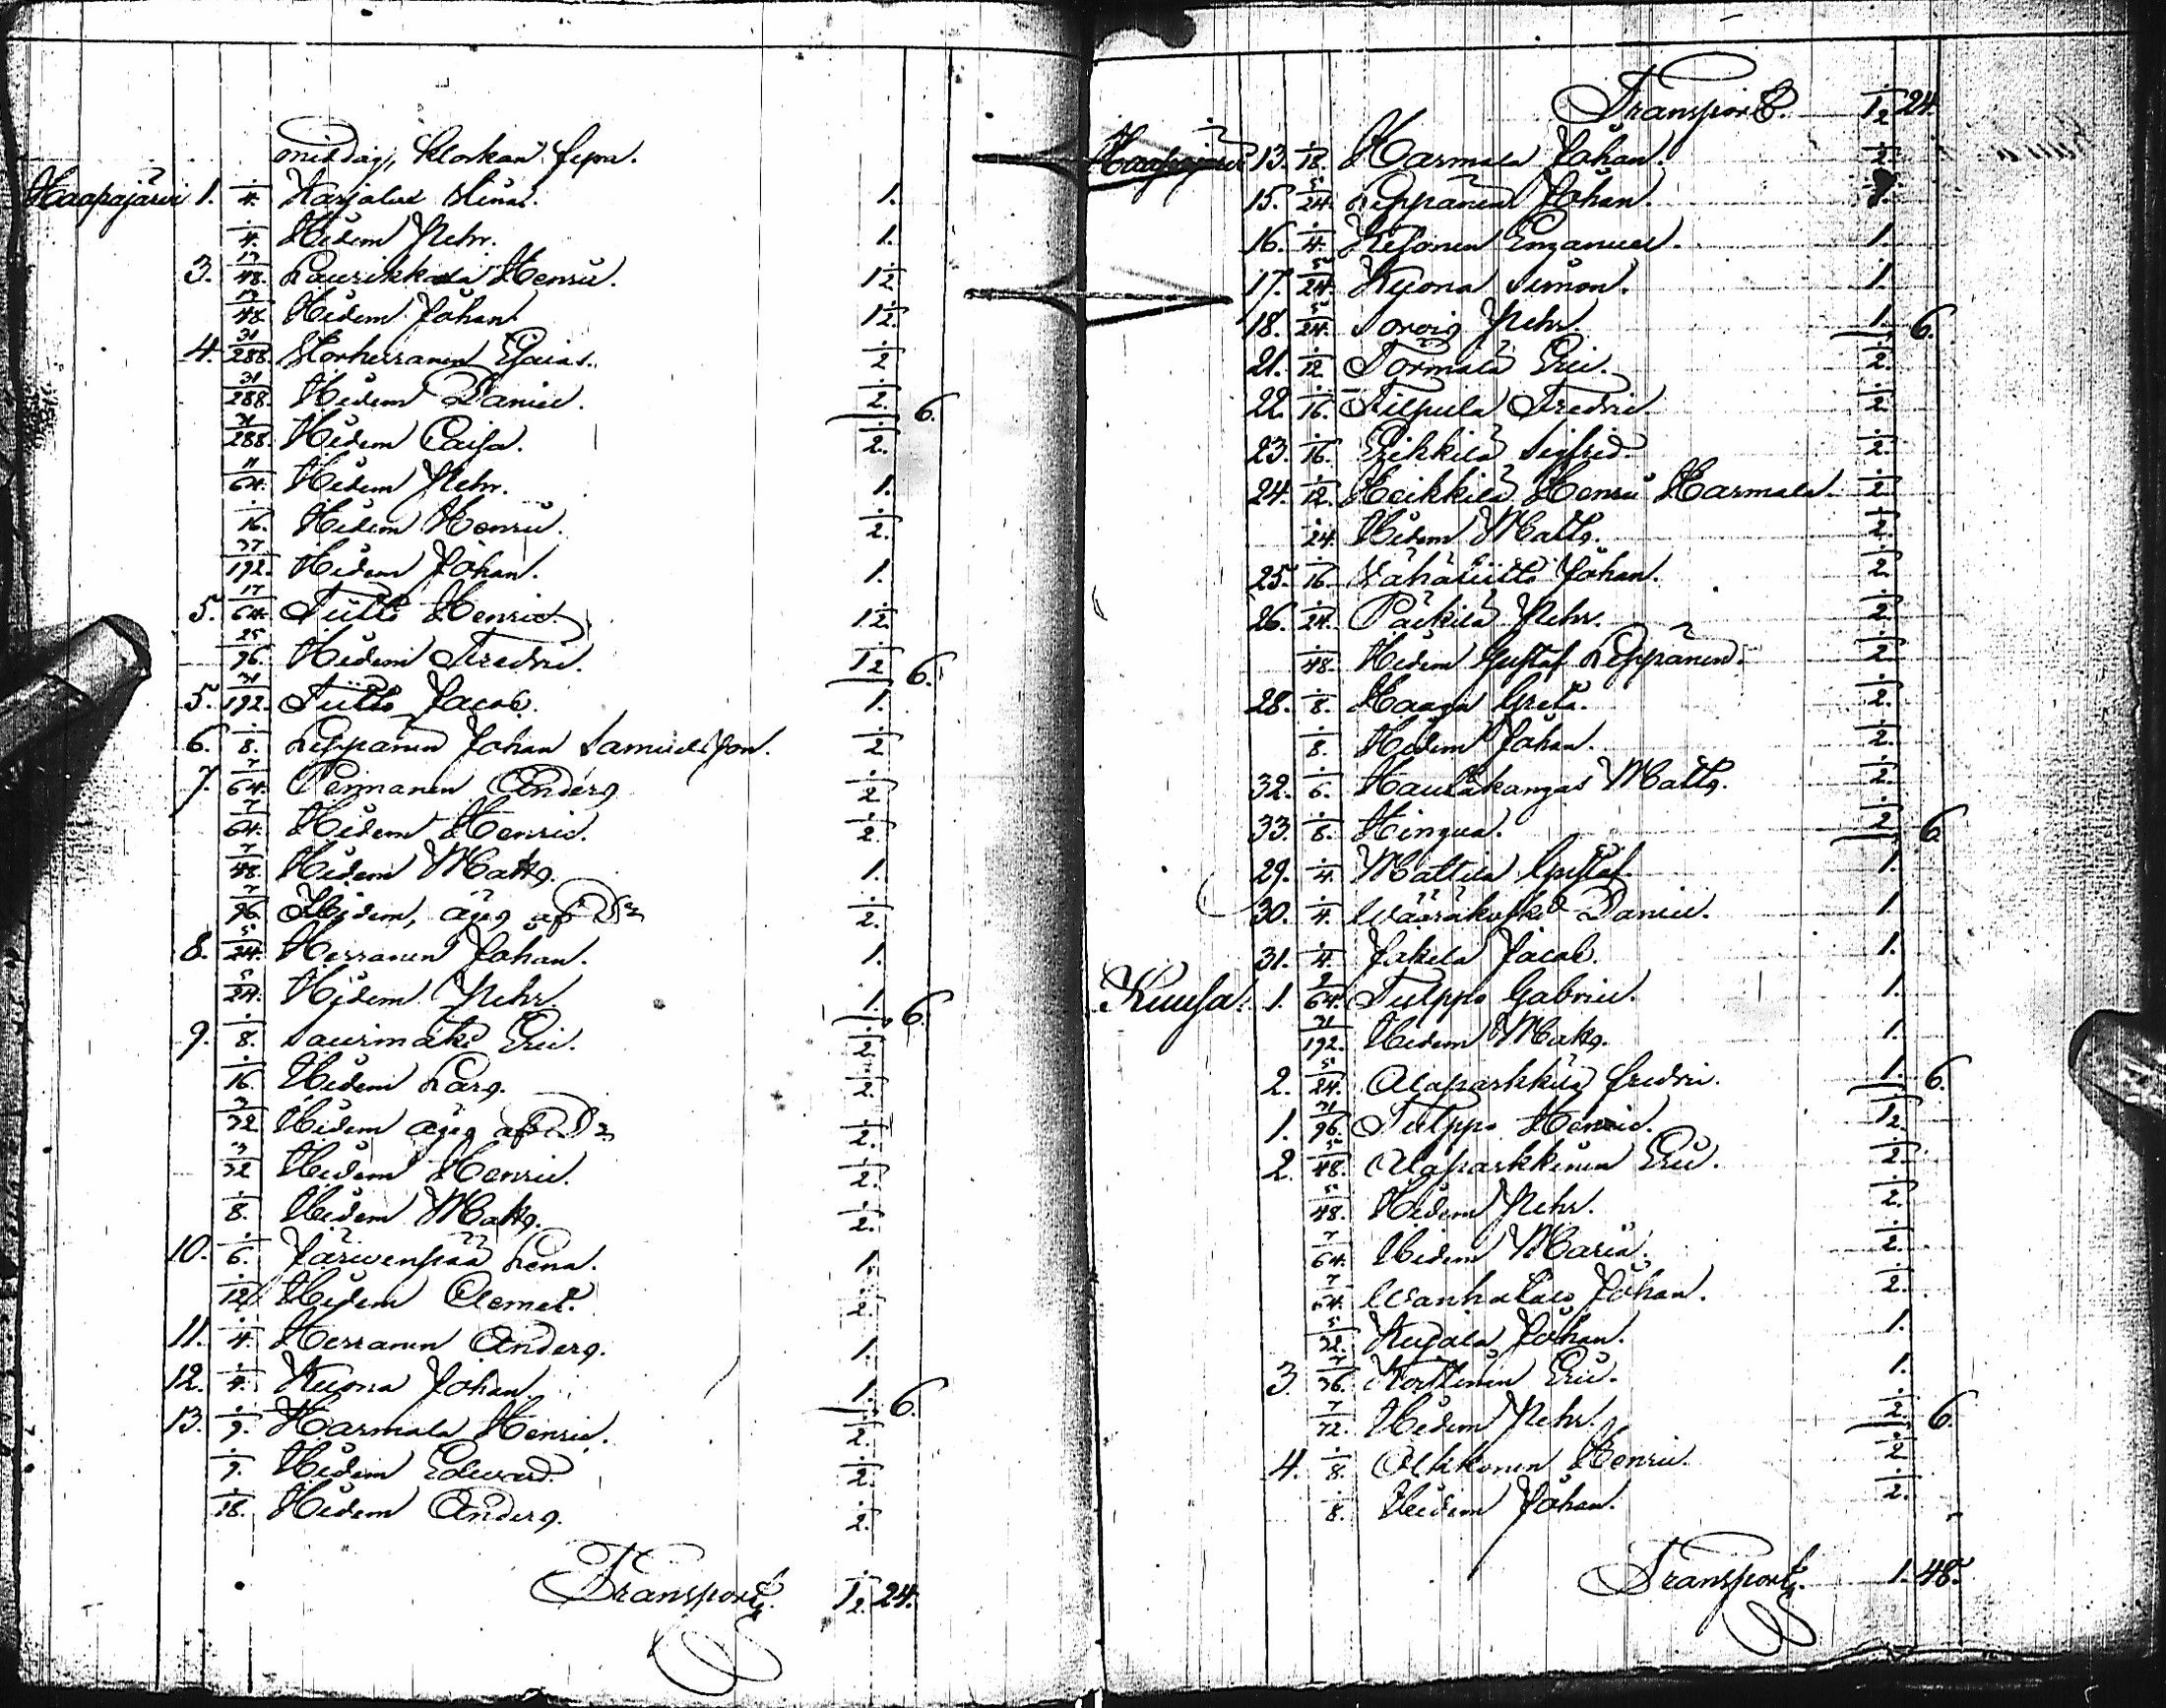 middag, Klockan fem.
Haapajärvi 1. 1/4. Karjalus Stina. 1.
1/4. Hidem Pehr. 1.
3. 13/48. Laurikkala Henric. 1 1/2
13/48. Hidem Johan. 1 1/2.
4. 31/288. Korherranen Esaias. 1/2
31/288. Hidem Daniel. 1/2. 6.
31/288. Hidem Caisa. 1/2.
11/64. Hidem Pehr. 1.
1/16. Hidem Henric. 1/2.
37/192. Hidem Johan. 1.
5. 17/64. Tullo Henric. 1 1/2
25/96. Hidem Fredric. 1 1/2 6.
5. 31/192. Tullo Jacob. 1.
6. 1/8. Leppänen Johan Samuelsson. 1/2
7. 7/64. Pennanen Anders 1/2
7/64. Hidem Henric. 1/2.
7/48. Hidem Matts. 1.
7/96. Hidem, äges af D:o 1/2.
8. 5/24. Herranen Johan. 1.
5/24. Hidem Pehr. 1. 6.
9. 1/8. Saurimäki Eric. 1/2.
1/16. Hidem Lars. 1/2.
3/32 Hidem äges af D:o 1/2.
3/32 Hidem Henric. 1/2.
1/8. Hidem Matts. 1/2.
10. 1/6. Järwenpää Lena. 1.
1/12 Hidem Clemet. 1/2.
11. 1/4. Herranen Anders. 1.
12. 1/4. Kuona Johan. 1. 6.
13. 1/9. Harmala Henric. 1/2.
1/9. Hidem Edward. 1/2.
1/18. Hidem Anders. 1/2.
Transport. 1/2. 24.
Transport. 1/2 24.
Haapajärvi 13. 1/18. Harmala Johan. 1/2.
15. 5/24. Leppänen Johan. 1.
16. 1/4. Kesonen Emanuel. 1.
17. 5/24. Kuona Simon. 1.
18. 5/24. Sorvig Pehr. 1. 6.
21. 1/12 Törmälä Eric. 1/2.
22. 1/16. Tilpula Fredric. 1/2.
23. 1/16. Erikkilä Sigfrid. 1/2.
24. 1/12. Heikkilä Henric Harmala. 1/2.
1/24. Hidem Matts. 1/2.
25. 1/16. Johan. 1/2.
26. 1/24. Päckilä Pehr. 1/2.
1/48. Hidem Gustaf Leppänen. 1/2.
28. 1/8. Haaga Greta. 1/2.
1/8. Hidem Johan. 1/2.
32. 1/6. Haulakangas Matts. 1/2.
33. 1/8. Hingua. 1/2 6.
29. 1/4. Mattila Gustaf. 1.
30. 1/4. Wääräkoski Daniel. 1.
31. 1/4. Jakela Jacob. 1.
Kuusa. 1. 9/64. Tulppo Gabriel. 1.
31/192. Hidem Matts. 1.
2. 5/24. Alaparkkila Fredric. 1. 6.
1. 31/96. Tulppo Henric. 1 1/2.
2. 5/48. Alaparkkinen Eric. 1/2.
5/48. Hidem Pehr. 1/2.
7/64. Hidem Maria. 1/2.
7/64. Wanhatalo Johan. 1/2.
5/32. Kujala Johan. 1.
3. 7/36. Korttinen Eric. 1.
7/72. Hidem Pehr. 1/2. 6.
4. 1/8. Ahkonen Henric. 1/2
1/8. Hidem Johan. 1/2.
Transport. 1. 48.